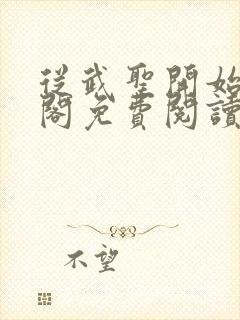 從武聖開始
閣免費閱讀
不望